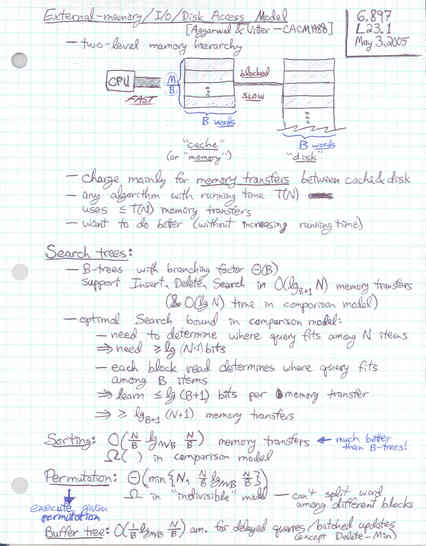 External-memory/I/O/Disk Access Model
[Aggarwal & Vitter – CACM 1988]
6.897
L23.1
May 3, 2005
– two-level memory hierarchy
CPU
FAST
M/B
blocked
SLOW
B words
B words
"cache"
(or "memory")
"disk"
– charge mainly for memory transfers between cache & disk
– any algorithm with running time T(N)
uses ≤ T(N) memory transfers
– want to do better (without increasing running time)
Search trees:
– B-trees with branching factor Θ(B)
support Insert, Delete, Search in O(lg_{B+1} N) memory transfers
(& O(lg N) time in comparison model)
– optimal Search bound in comparison model:
– need to determine where query fits among N items
⇒ need ≥ lg (N+1) bits
– each block read determines where query fits
among B items
⇒ learn ≤ lg (B+1) bits per memory transfer
⇒ ≥ lg_{B+1} (N+1) memory transfers
Sorting: O(N/B lg_{M/B} N/B) memory transfers ← much better
than B-trees!
Ω( ) in comparison model
Permutation: Θ(min{N, N/B lg_{M/B} N/B})
Ω in "indivisible" model – can't split word
among different blocks
execute given
permutation
Buffer tree: O(1/B lg_{M/B} N/B) am. for delayed queries/batched updates
(except Delete-Min)